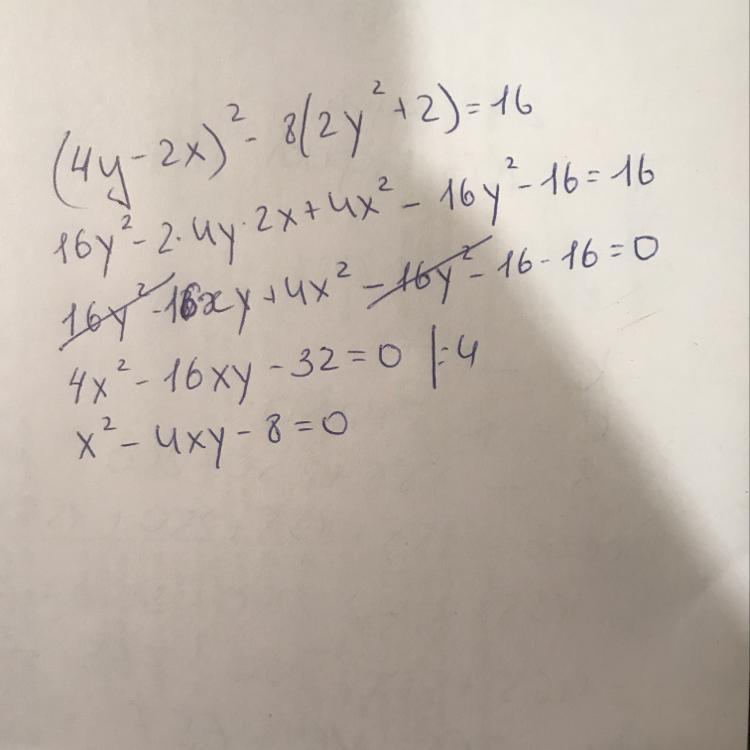 (4y-2x)² - 8(2y²+2)=16
16y²-2·4y·2x+4x²-16y²-16=16
16y²-16xy+4x²-16y²-16-16=0
4x²-16xy-32=0 |:4
x²-4xy-8=0